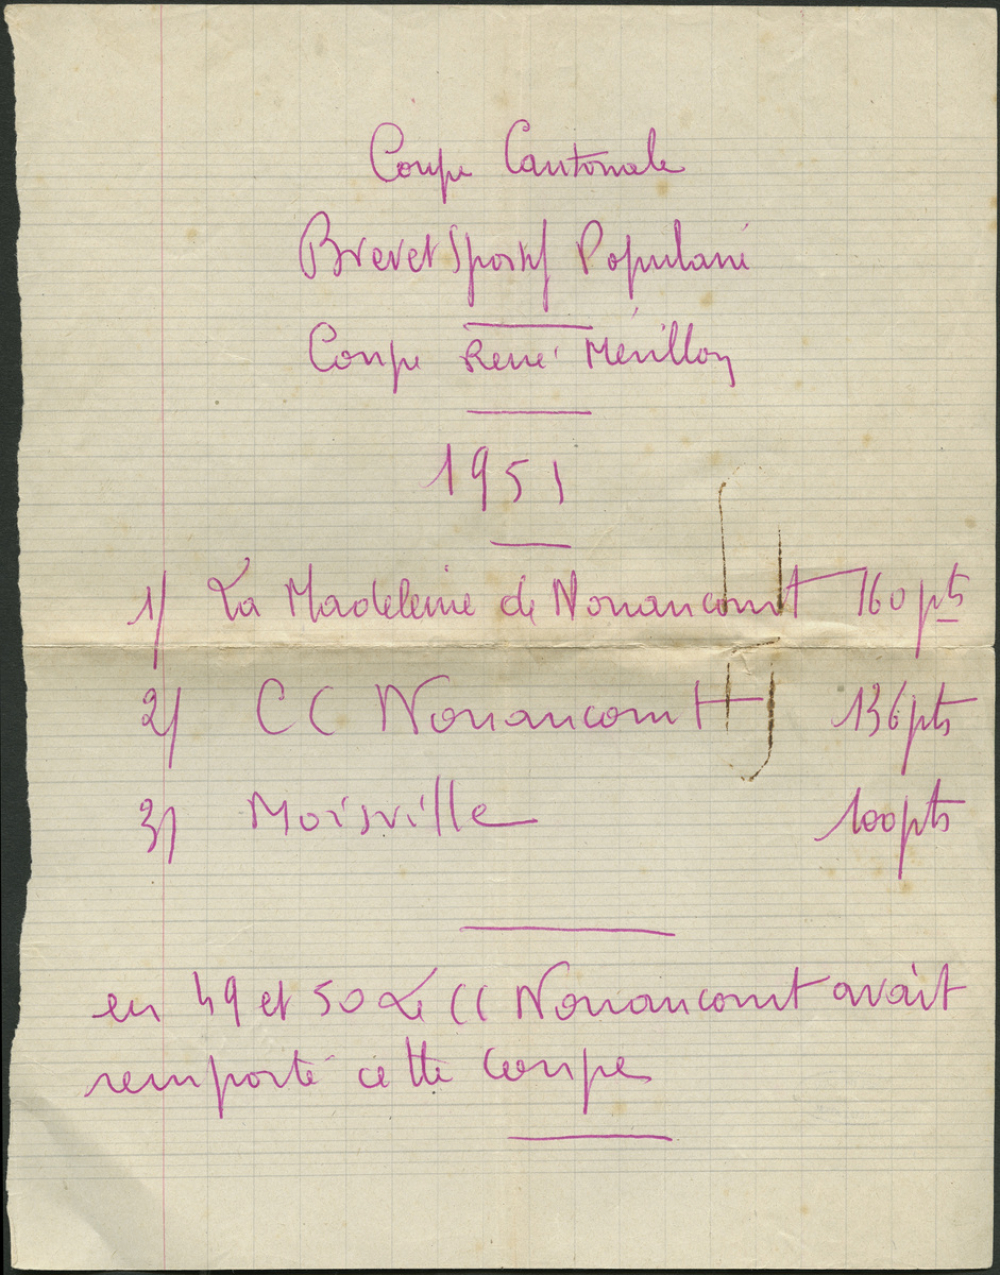 Coupe Cantonale
Brevet Sportif Populaire
Coupe René Mérillon
1951
1/ La Madeleine de Nonancourt 160 pts
2/ CC Nonancourt 136 pts
3/ Moisville 100 pts
en 49 et 50 Le CC Nonancourt avait
remporté cette Coupe